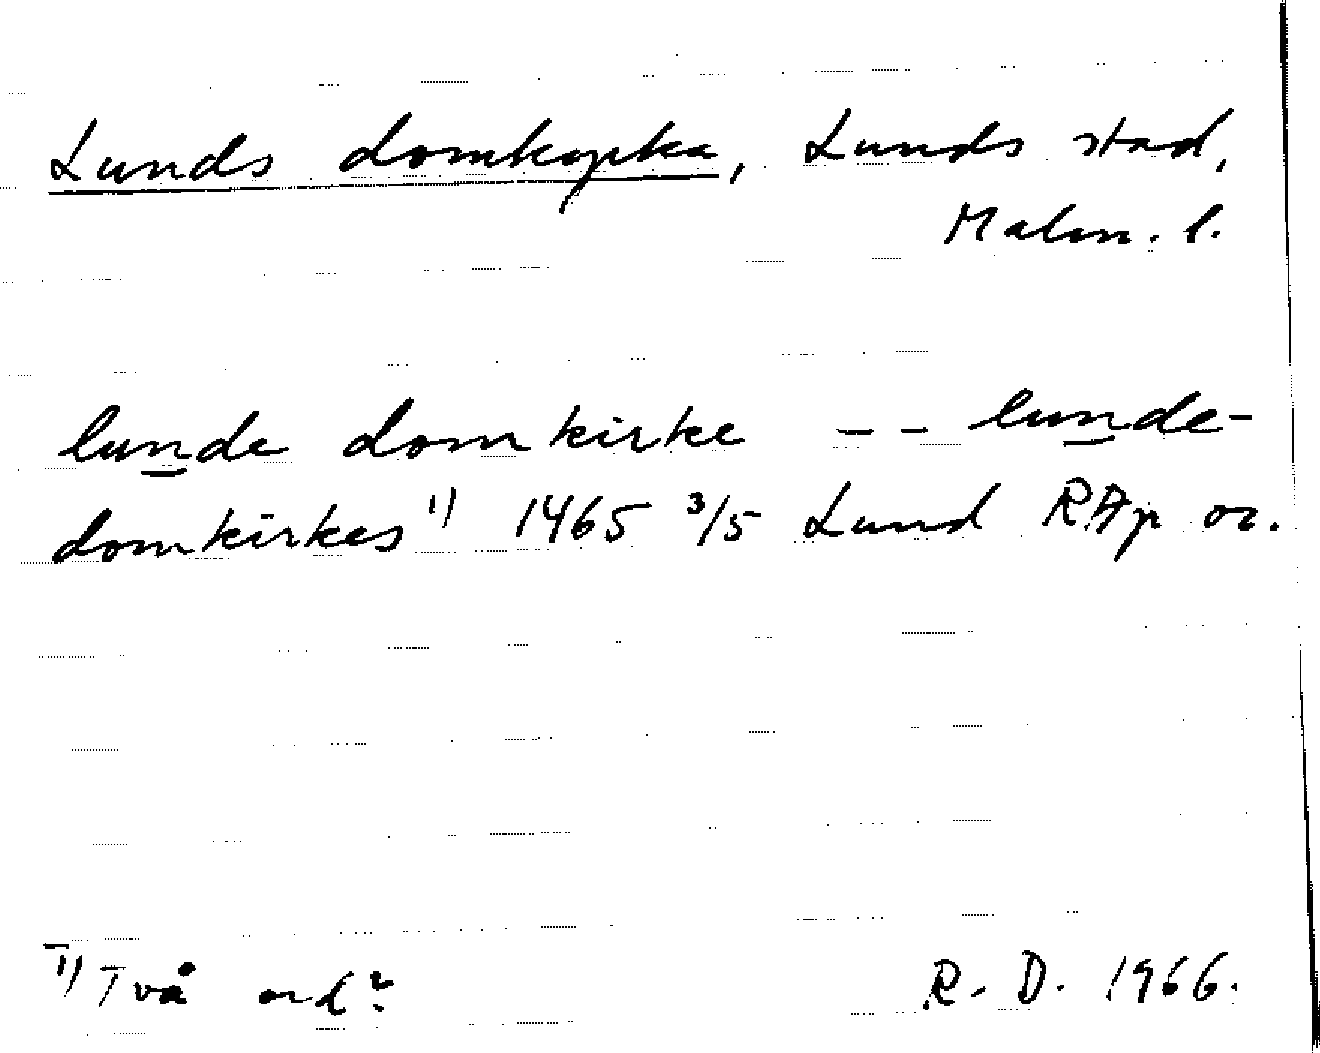 Lunds domkyrka, Lunds stad,
Malm. l.
lunde domkirke -- lunde-
domkirkes 1) 1465 3/5 Lund RAp or.
1) Två ord?
R. D. 1966.